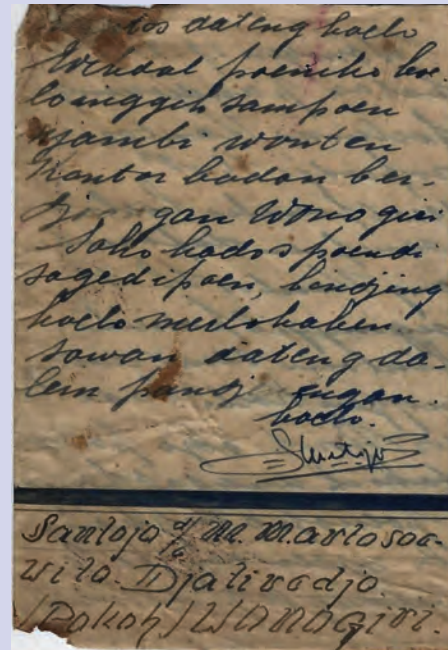 dateng koelo
Wedal poeniko koe-
lo inggih sampoen
njambi wonten
Kantor badan ber-
gan Wonogiri
Soho kados poendi
sagedipoen, bendjing
koelo merlokaken
sowan dateng da-
lem pandj engan.
koelo.
Santojo d/a M. Marto soe-
wito. Djatiredjo.
(Pokoh) WONOGiri.